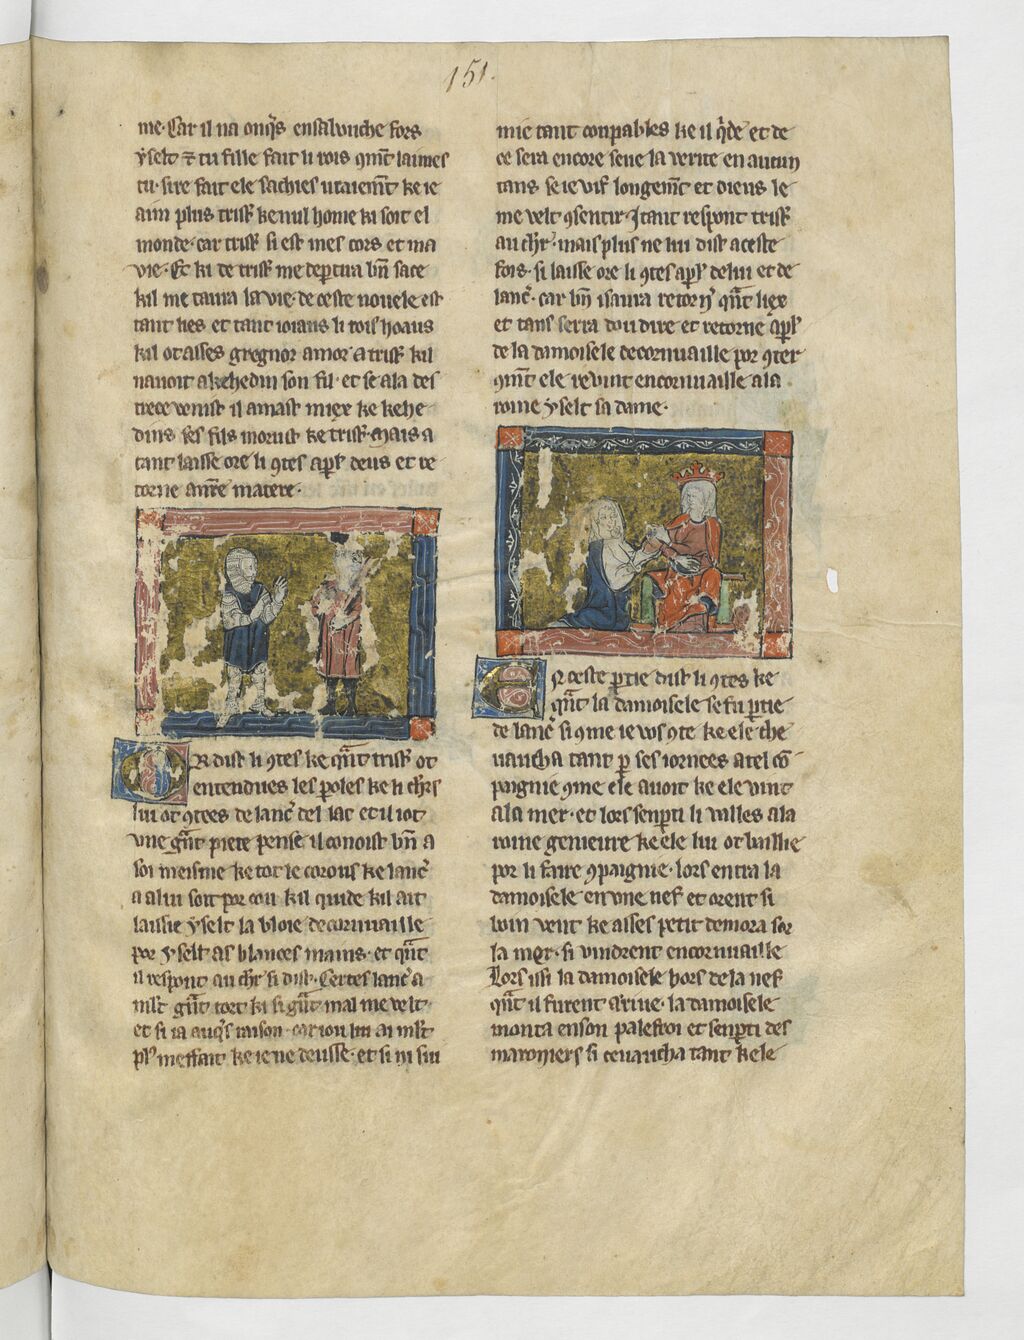 151.
me. Car il na onq̃s ensaluuche fors
yselt ⁊ tu fille fait li rois q̃mt laimes
tu. sire fait ele sachies uraiemt ke ie
aim plus trist̃ ke nul home ki soit el
monde. car trist̃ si est mes cors et ma
vie. Et ki de trist̃ me departira bñ sace
kil me taura la vie. de ceste nouele est
tant lies et tant ioians li rois hoaus
kil ot asses gregnor amor a trist̃ kil
nauoit a kehedin son fil. et se a la des
trece venist il amast miex ke kehe
dins ses fils morust ke trist̃. Mais a
tant laisse ore li 9tes ap̃l deus et re
torne autre matere.
OR dist li 9tes ke q̃nt trist̃ ot
entendues les p̃oles ke li ch̃rs
lui ot 9tees de lanc̃ del lac et il i ot
une g̃nt piece pense il conoist bñ a
soi meisme ke tot le corous ke lanc̃
a a lui soit por cou kil quide kil ait
laissie yselt la bloie de cornuaille
por yselt as blances mains. et q̃nt
il respont au ch̃r si dist. Certes lanc̃ a
mlt̃ g̃nt tort ki si g̃nt mal me velt.
et si ia auq̃s raison. car iou lui ai mlt̃
pl̃ meffait ke ie ne deusse. et si ni sui
mie tant coupables ke il q̃de et de
ce sera encore seue la verite en aucun
tans se ie vif longemt et dieus le
me velt 9sentir. Itant respont trist̃
au ch̃r. mais plus ne lui dist a ceste
fois. si laisse ore li 9tes ap̃l de lui et de
lanc̃. car bñ i saura retorñ q̃nt liex
et tans serra dou dire et retorne ap̃l
de la damoisele de cornuaille por 9ter
9mt ele reuint en cornuaille a la
roine yselt sa dame.
EN ceste p̃tie dist li 9tes ke
q̃nt la damoisele se fu p̃tie
de lanc̃ si 9me ie vos 9te ke ele che
uaucha tant p ses iornees a tel cõ
paignie 9me ele auoit ke ele vint
a la mer. et lors senp̃ti li valles a la
roine genieure ke ele lui ot baillie
por li faire 9paignie. lors entra la
damoisele en une nef et orent si
boin vent ke asses petit demora sor
la mer. si vindrent en cornuaille
Lors issi la damoisele hors de la nef
q̃nt il furent ariue. la damoisele
monta en son palefroi et senp̃ti des
maroniers si ceuaucha tant kele